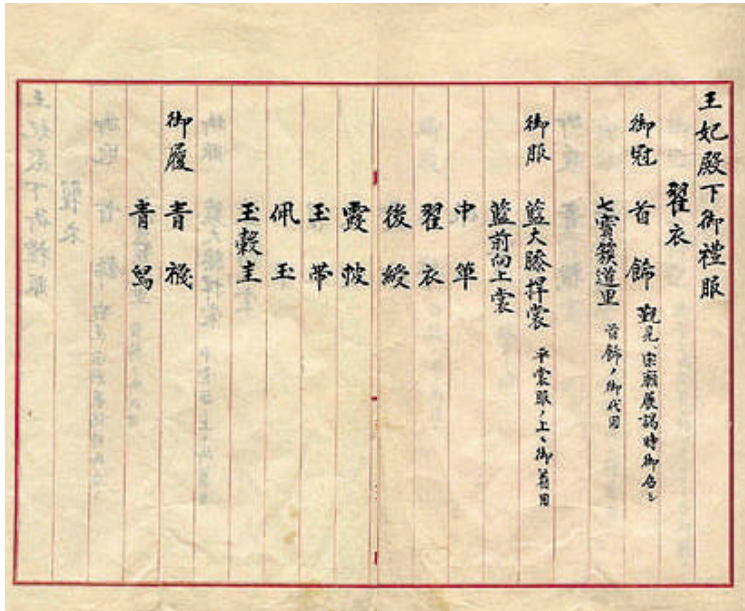 王妃殿下御禮服
翟衣
御冠 首飾 覲見、宗廟展謁時御召シ
七寶簇道里 首飾ノ御代用
御服 藍大膝拝裳 平常服ノ上ニ御着用
藍前向上裳
中単
翟衣
後綬
霞帔
玉帯
佩玉
玉穀圭
御履 青襪
青舃